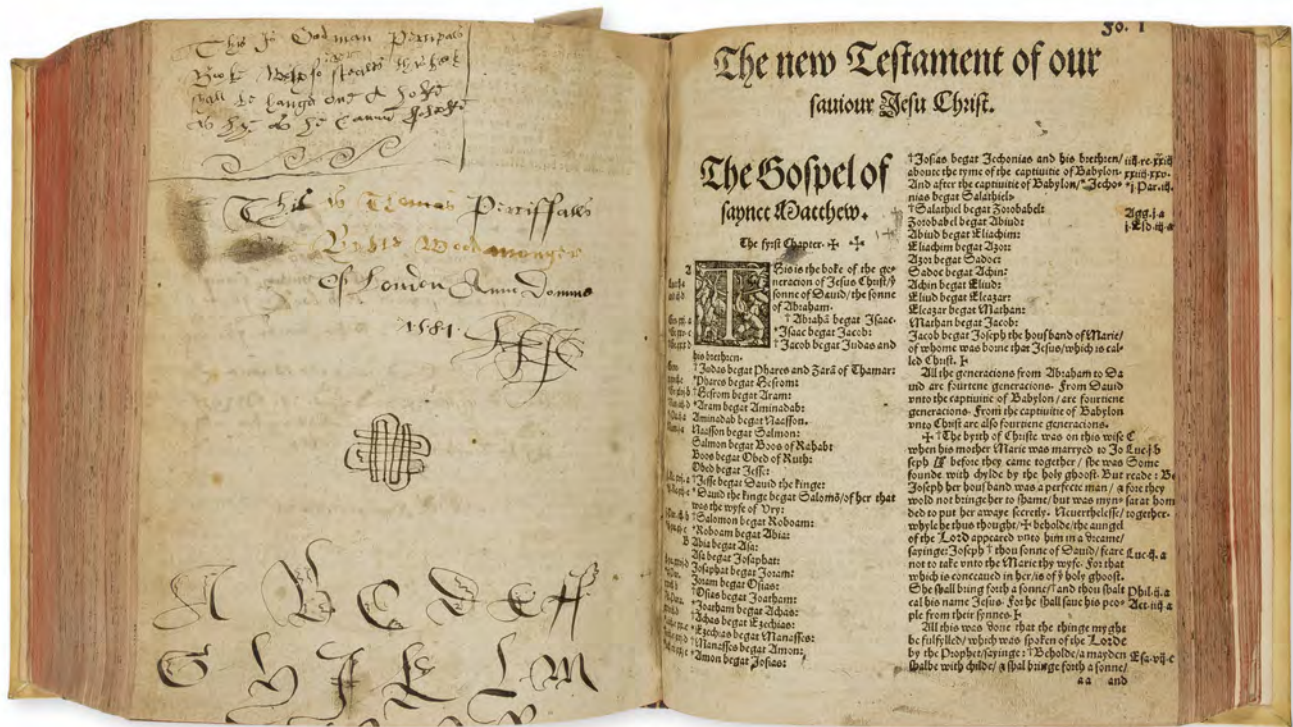 This is Thomas Perciffalls
Woodmonger
of London Anno Domini
1581.
A B C D E ff
G H I K L M
Fo. 1
The new Testament of our
sauiour Jesu Christ.
The Gospel of
saynct Matthew.
The fyrst Chapter. ✠ ✠
A
This is the boke of the ge-
neracion of Jesus Christ/yͤ
sonne of Dauid/the sonne
of Abraham.
†Abrahā begat Isaac.
*Isaac begat Jacob:
†Jacob begat Judas and
his brethren.
†Judas begat Phares and Zarā of Thamar:
*Phares begat Hesrom:
†Hesrom begat Aram:
*Aram begat Aminadab:
Aminadab begat Naasson.
Naasson begat Salmon:
Salmon begat Boos of Rahab:
Boos begat Obed of Ruth:
Obed begat Jesse:
†Jesse begat Dauid the kinge:
*Dauid the kinge begat Salomō/of her that
was the wyfe of Vry:
†Salomon begat Roboam:
*Roboam begat Abia:
B Abia begat Asa:
Asa begat Josaphat:
Josaphat begat Joram:
Joram begat Osias:
†Osias begat Joatham:
*Joatham begat Achas:
†Achas begat Ezechias:
*Ezechias begat Manasses:
†Manasses begat Amon:
*Amon begat Josias:
†Josias begat Jechonias and his brethren/
aboute the tyme of the captiuitie of Babylon.
And after the captiuitie of Babylon/*Jecho-
nias begat Salathiel.
†Salathiel begat Zorobabel:
Zorobabel begat Abiud:
Abiud begat Eliachim:
Eliachim begat Azor:
Azor begat Sadoc:
Sadoc begat Achin:
Achin begat Eliud:
Eliud begat Eleazar:
Eleazar begat Mathan:
Mathan begat Jacob:
Jacob begat Joseph the housband of Marie/
of whome was borne that Jesus/which is cal-
led Christ. ✠
All the generacions from Abraham to Da
uid are fourtene generacions. From Dauid
vnto the captiuitie of Babylon/are fourtiene
generacions. From the captiuitie of Babylon
vnto Christ are also fourtiene generacions.
✠ †The byrth of Christe was on this wise C
when his mother Marie was marryed to Jo
seph ☞ before they came together/she was
founde with chylde by the holy ghoost. But
Joseph her housband was a perfecte man/&
wold not bringe her to shame/but was myn-
ded to put her awaye secretly. Neuerthelesse/
whyle he thus thought/✠ beholde/the aungel
of the Lord appeared vnto him in a dreame/
sayinge: Joseph † thou sonne of Dauid/feare
not to take vnto the Marie thy wyfe. For that
which is conceaued in her/is of yͤ holy ghoost.
She shall bring forth a sonne/†and thou shalt
cal his name Jesus. For he shall saue his peo-
ple from their synnes. ✠
All this was done that the thinge myght
be fulfylled/which was spoken of the Lorde
by the Prophet/sayinge: †Beholde/a mayden
shalbe with childe/& shal bringe forth a sonne/
aa and
iiij.re.xxiij
xxiiij.xxv.
*j.Par.iij.
Agg.j.a
j.Esd.iij.a
Luc.j.b
Some
reade: Be
fore they
sat at hom
together.
Luc.ij.a
Phil.ij.a
Act.iiij.a
Esa.vij.c